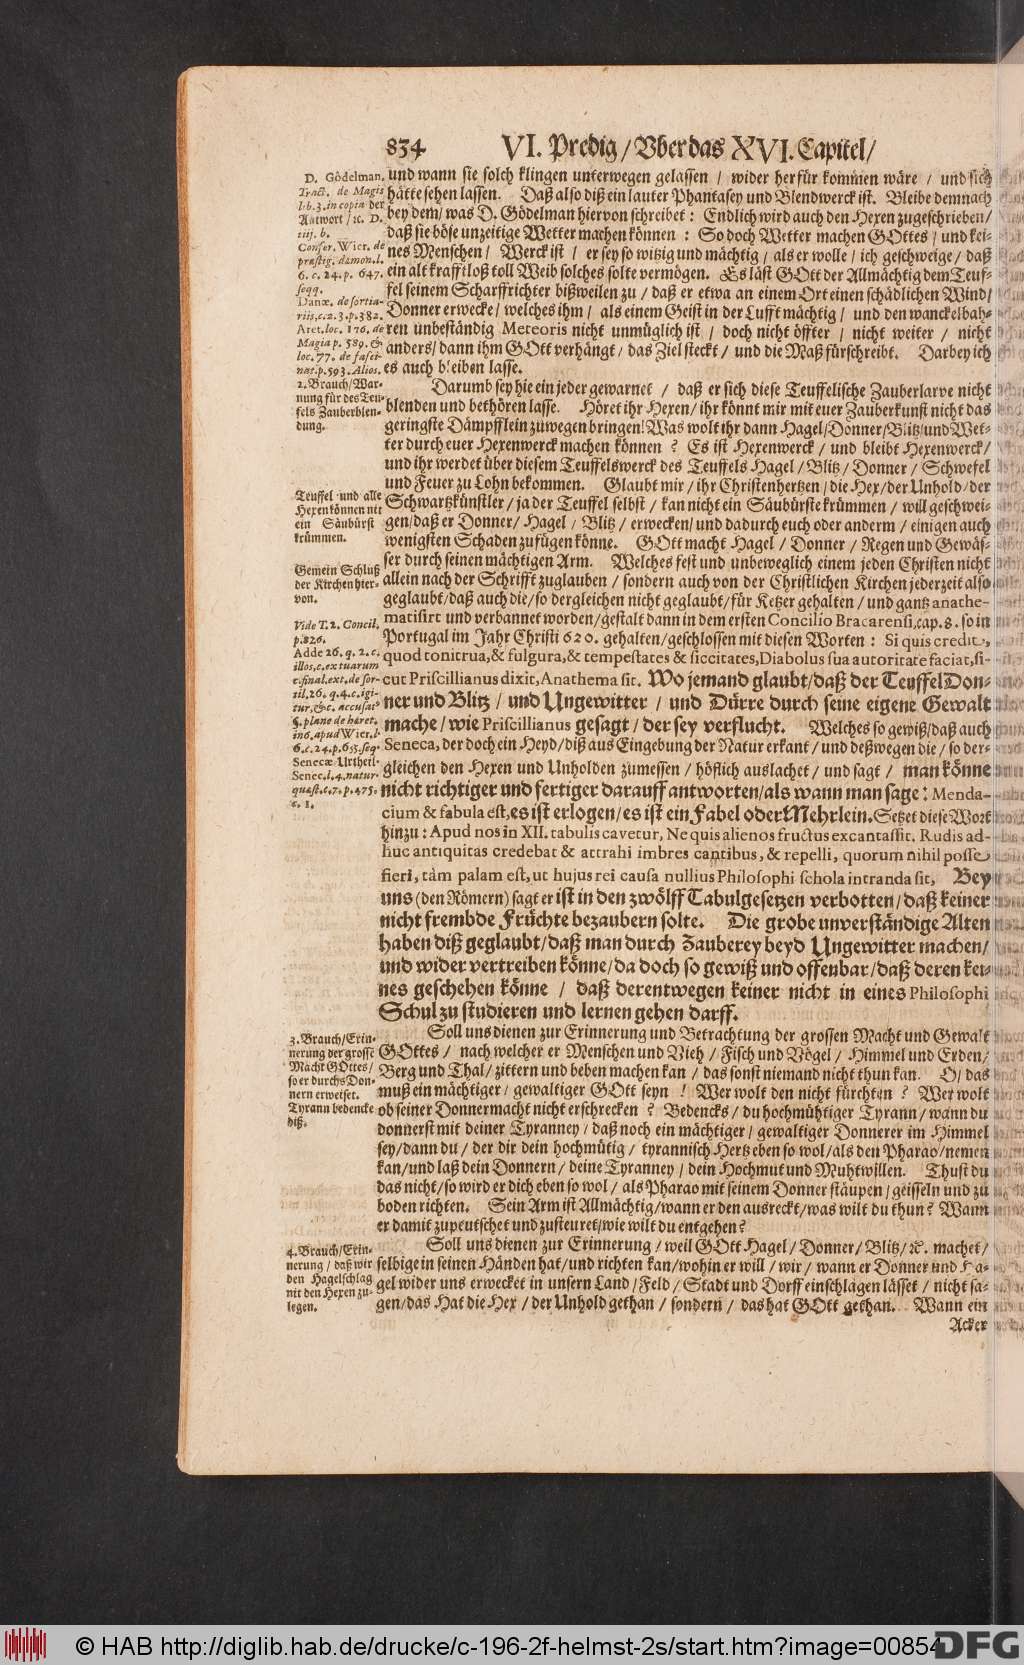 834 VI. Predig / Vber das XVI. Capitel /
D. Gödelman.
Tract. de Magis
l.b.3. in copia der
Antwort / ꝛc. D.
iiij. b.
Confer. Wier. de
præstig. dæmon. l.
6. c. 24. p. 647.
seqq.
Danæ. de sortia-
riis, c. 2. 3. p. 382.
Aret. loc. 176. de
Magia p. 589. &
loc. 77. de fasci-
nat. p. 593. Alios.
2. Brauch / War-
nung für des Teu-
fels Zauberblen-
dung.
Teuffel und alle
Hexen können nit
ein Säubürst
krümmen.
Gemein Schluß
der Kirchen hier-
von.
Vide T. 2. Concil.
p. 826.
Adde 26. q. 2. c.
illos, c. ex tuarum
c. final. ext. de sor-
til. 26. q. 4. c. igi-
tur, &c. accusat
§. plane de hæret.
in 6. apud Wier. l.
6. c. 24. p. 653. seq.
Senecæ Urtheil.
Senec. l. 4. natur.
quæst. c. 7. p. 475.
c. 1.
3. Brauch / Erin-
nerung der grosse
Macht GOttes /
so er durchs Don-
nern erweiset.
Tyrann bedencke
diß.
4. Brauch / Erin-
nerung / daß wir
den Hagelschlag
nit den Hexen zu-
legen.
und wann sie solch klingen unterwegen gelassen / wider herfür kommen wäre / und sich
hätte sehen lassen. Daß also diß ein lauter Phantasey und Blendwerck ist. Bleibe demnach
bey dem / was D. Gödelman hiervon schreibet : Endlich wird auch den Hexen zugeschrieben /
daß sie böse unzeitige Wetter machen können : So doch Wetter machen GOttes / und kei-
nes Menschen / Werck ist / er sey so witzig und mächtig / als er wolle / ich geschweige / daß
ein alt krafftloß toll Weib solches solte vermögen. Es läst GOtt der Allmächtig dem Teuf-
fel seinem Scharffrichter bißweilen zu / daß er etwa an einem Ort einen schädlichen Wind /
Donner erwecke / welches ihm / als einem Geist in der Lufft mächtig / und den wanckelbah-
ren unbeständig Meteoris nicht unmüglich ist / doch nicht öffter / nicht weiter / nicht
anders / dann ihm GOtt verhängt / das Ziel steckt / und die Maß fürschreibt. Darbey ich
es auch bleiben lasse.
Darumb sey hie ein jeder gewarnet / daß er sich diese Teuffelische Zauberlarve nicht
blenden und bethören lasse. Höret ihr Hexen / ihr könnt mir mit euer Zauberkunst nicht das
geringste Dämpfflein zuwegen bringen! Was wolt ihr dann Hagel / Donner / Blitz / und Wet-
ter durch euer Hexenwerck machen können ? Es ist Hexenwerck / und bleibt Hexenwerck /
und ihr werdet über diesem Teuffelswerck des Teuffels Hagel / Blitz / Donner / Schwefel
und Feuer zu Lohn bekommen. Glaubt mir / ihr Christenhertzen / die Hex / der Unhold / der
Schwartzkünstler / ja der Teuffel selbst / kan nicht ein Säubürste krümmen / will geschwei-
gen / daß er Donner / Hagel / Blitz / erwecken / und dadurch euch oder anderm / einigen auch
wenigsten Schaden zufügen könne. GOtt macht Hagel / Donner / Regen und Gewäs-
ser durch seinen mächtigen Arm. Welches fest und unbeweglich einem jeden Christen nicht
allein nach der Schrifft zuglauben / sondern auch von der Christlichen Kirchen jederzeit also
geglaubt / daß auch die / so dergleichen nicht geglaubt / für Ketzer gehalten / und gantz anathe-
matisirt und verbannet worden / gestalt dann in dem ersten Concilio Bracarensi, cap. 8. so in
Portugal im Jahr Christi 620. gehalten / geschlossen mit diesen Worten : Si quis credit,
quod tonitrua, & fulgura, & tempestates & siccitates, Diabolus sua autoritate faciat, si-
cut Priscillianus dixit, Anathema sit. Wo jemand glaubt / daß der Teuffel Don-
ner und Blitz / und Ungewitter / und Dürre durch seine eigene Gewalt
mache / wie Priscillianus gesagt / der sey verflucht. Welches so gewiß / daß auch
Seneca, der doch ein Heyd / diß aus Eingebung der Natur erkant / und deßwegen die / so der-
gleichen den Hexen und Unholden zumessen / höflich auslachet / und sagt / man könne
nicht richtiger und fertiger darauff antworten / als wann man sage : Menda-
cium & fabula est, es ist erlogen / es ist ein Fabel oder Mehrlein. Setzet diese Wort
hinzu : Apud nos in XII. tabulis cavetur, Ne quis alienos fructus excantassit. Rudis ad-
huc antiquitas credebat & attrahi imbres cantibus, & repelli, quorum nihil posse
fieri, tàm palam est, ut hujus rei causa nullius Philosophi schola intranda sit, Bey
uns (den Römern) sagt er ist in den zwölff Tabulgesetzen verbotten / daß keiner
nicht frembde Früchte bezaubern solte. Die grobe unverständige Alten
haben diß geglaubt / daß man durch Zauberey beyd Ungewitter machen /
und wider vertreiben könne / da doch so gewiß und offenbar / daß deren kei-
nes geschehen könne / daß derentwegen keiner nicht in eines Philosophi
Schul zu studieren und lernen gehen darff.
Soll uns dienen zur Erinnerung und Betrachtung der grossen Macht und Gewalt
GOttes / nach welcher er Menschen und Vieh / Fisch und Vögel / Himmel und Erden /
Berg und Thal / zittern und beben machen kan / das sonst niemand nicht thun kan. O / das
muß ein mächtiger / gewaltiger GOtt seyn ! Wer wolt den nicht fürchten ? Wer wolt
ob seiner Donnermacht nicht erschrecken ? Bedencks / du hochmühtiger Tyrann / wann du
donnerst mit deiner Tyranney / daß noch ein mächtiger / gewaltiger Donnerer im Himmel
sey / dann du / der dir dein hochmütig / tyrannisch Hertz eben so wol / als den Pharao / nemen
kan / und laß dein Donnern / deine Tyranney / dein Hochmut und Muhtwillen. Thust du
das nicht / so wird er dich eben so wol / als Pharao mit seinem Donner stäupen / geisseln und zu
boden richten. Sein Arm ist Allmächtig / wann er den ausreckt / was wilt du thun ? Wann
er damit zupeutschet und zusteuret / wie wilt du entgehen ?
Soll uns dienen zur Erinnerung / weil GOtt Hagel / Donner / Blitz / ꝛc. machet /
selbige in seinen Händen hat / und richten kan / wohin er will / wir / wann er Donner und Ha-
gel wider uns erwecket in unsern Land / Feld / Stadt und Dorff einschlagen lässet / nicht sa-
gen / das Hat die Hex / der Unhold gethan / sondern / das hat GOtt gethan. Wann ein
Acker
© HAB http://diglib.hab.de/drucke/c-196-2f-helmst-2s/start.htm?image=00854
DFG